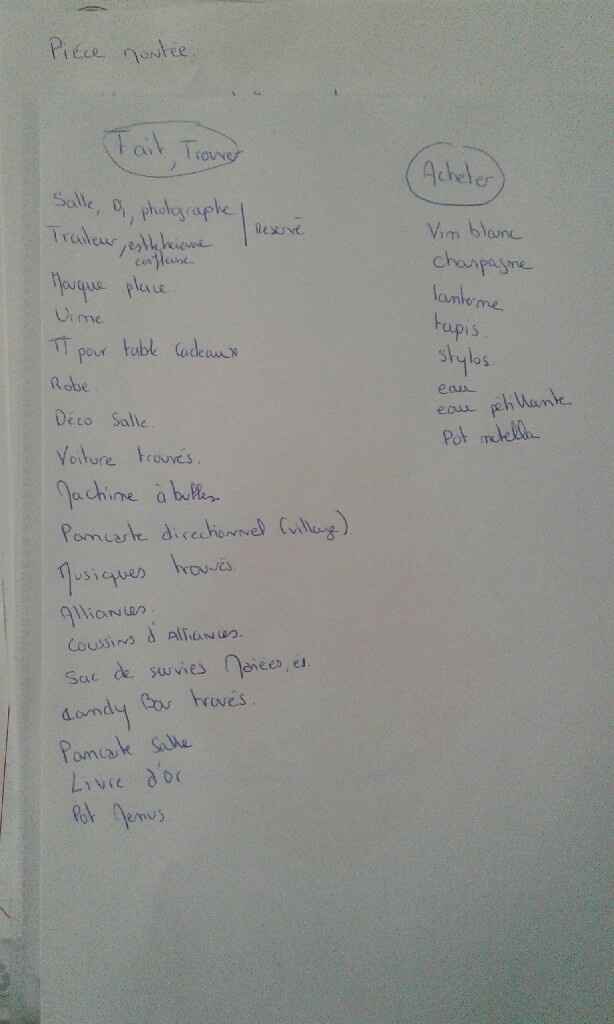 Pièce montée.
Fait, Trouver
Salle, DJ, photographe
Traiteur, esthéticienne
coiffeuse
Réservé
Marque place
Urne
pour table Cadeaux
Robe
Déco Salle.
Voiture trouvés.
Machine à bulles.
Pancarte directionnel (village)
Musiques trouvés.
Alliances.
Coussins d'Alliances.
Sac de survies Mariées, és.
Candy Bar trouvés.
Pancarte Salle
Livre d'Or
Pot Menus
Acheter
Vin blanc
Champagne
lanterne
tapis.
stylos.
eau
eau pétillante
Pot nutella